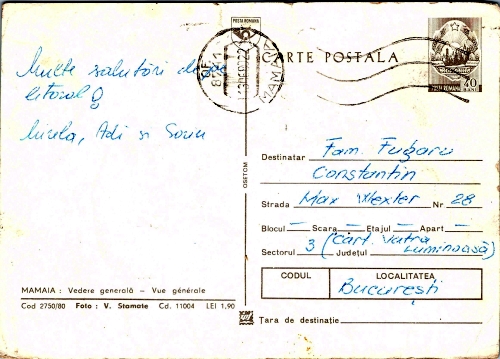 POSTA ROMANA
CARTE POSTALA
MAMAIA
POSTA ROMANA
40
BANI
Multe salutări de pe
litoral
Mirela, Adi si Sorin
Destinatar Fam. Fugaru
Constantin
Strada Max Wexler Nr. 28
Blocul — Scara — Etajul — Apart —
Sectorul 3 (Cart. Vatra
Județul Luminoasă)
CODUL LOCALITATEA
București
Țara de destinație
OSETOM
MAMAIA : Vedere generală — Vue générale
Cod 2750/80 Foto : V. Stamate Cd. 11004 LEI 1,90